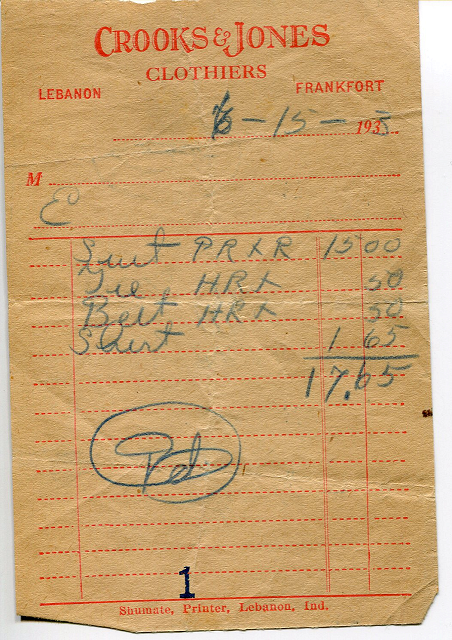 CROOKS & JONES
CLOTHIERS
LEBANON FRANKFORT
-15- 193
M
Suit PRXR 15 00
Tie HRX 50
Belt HRX 50
Shirt 1 65
17.65
1
Shumate, Printer, Lebanon, Ind.